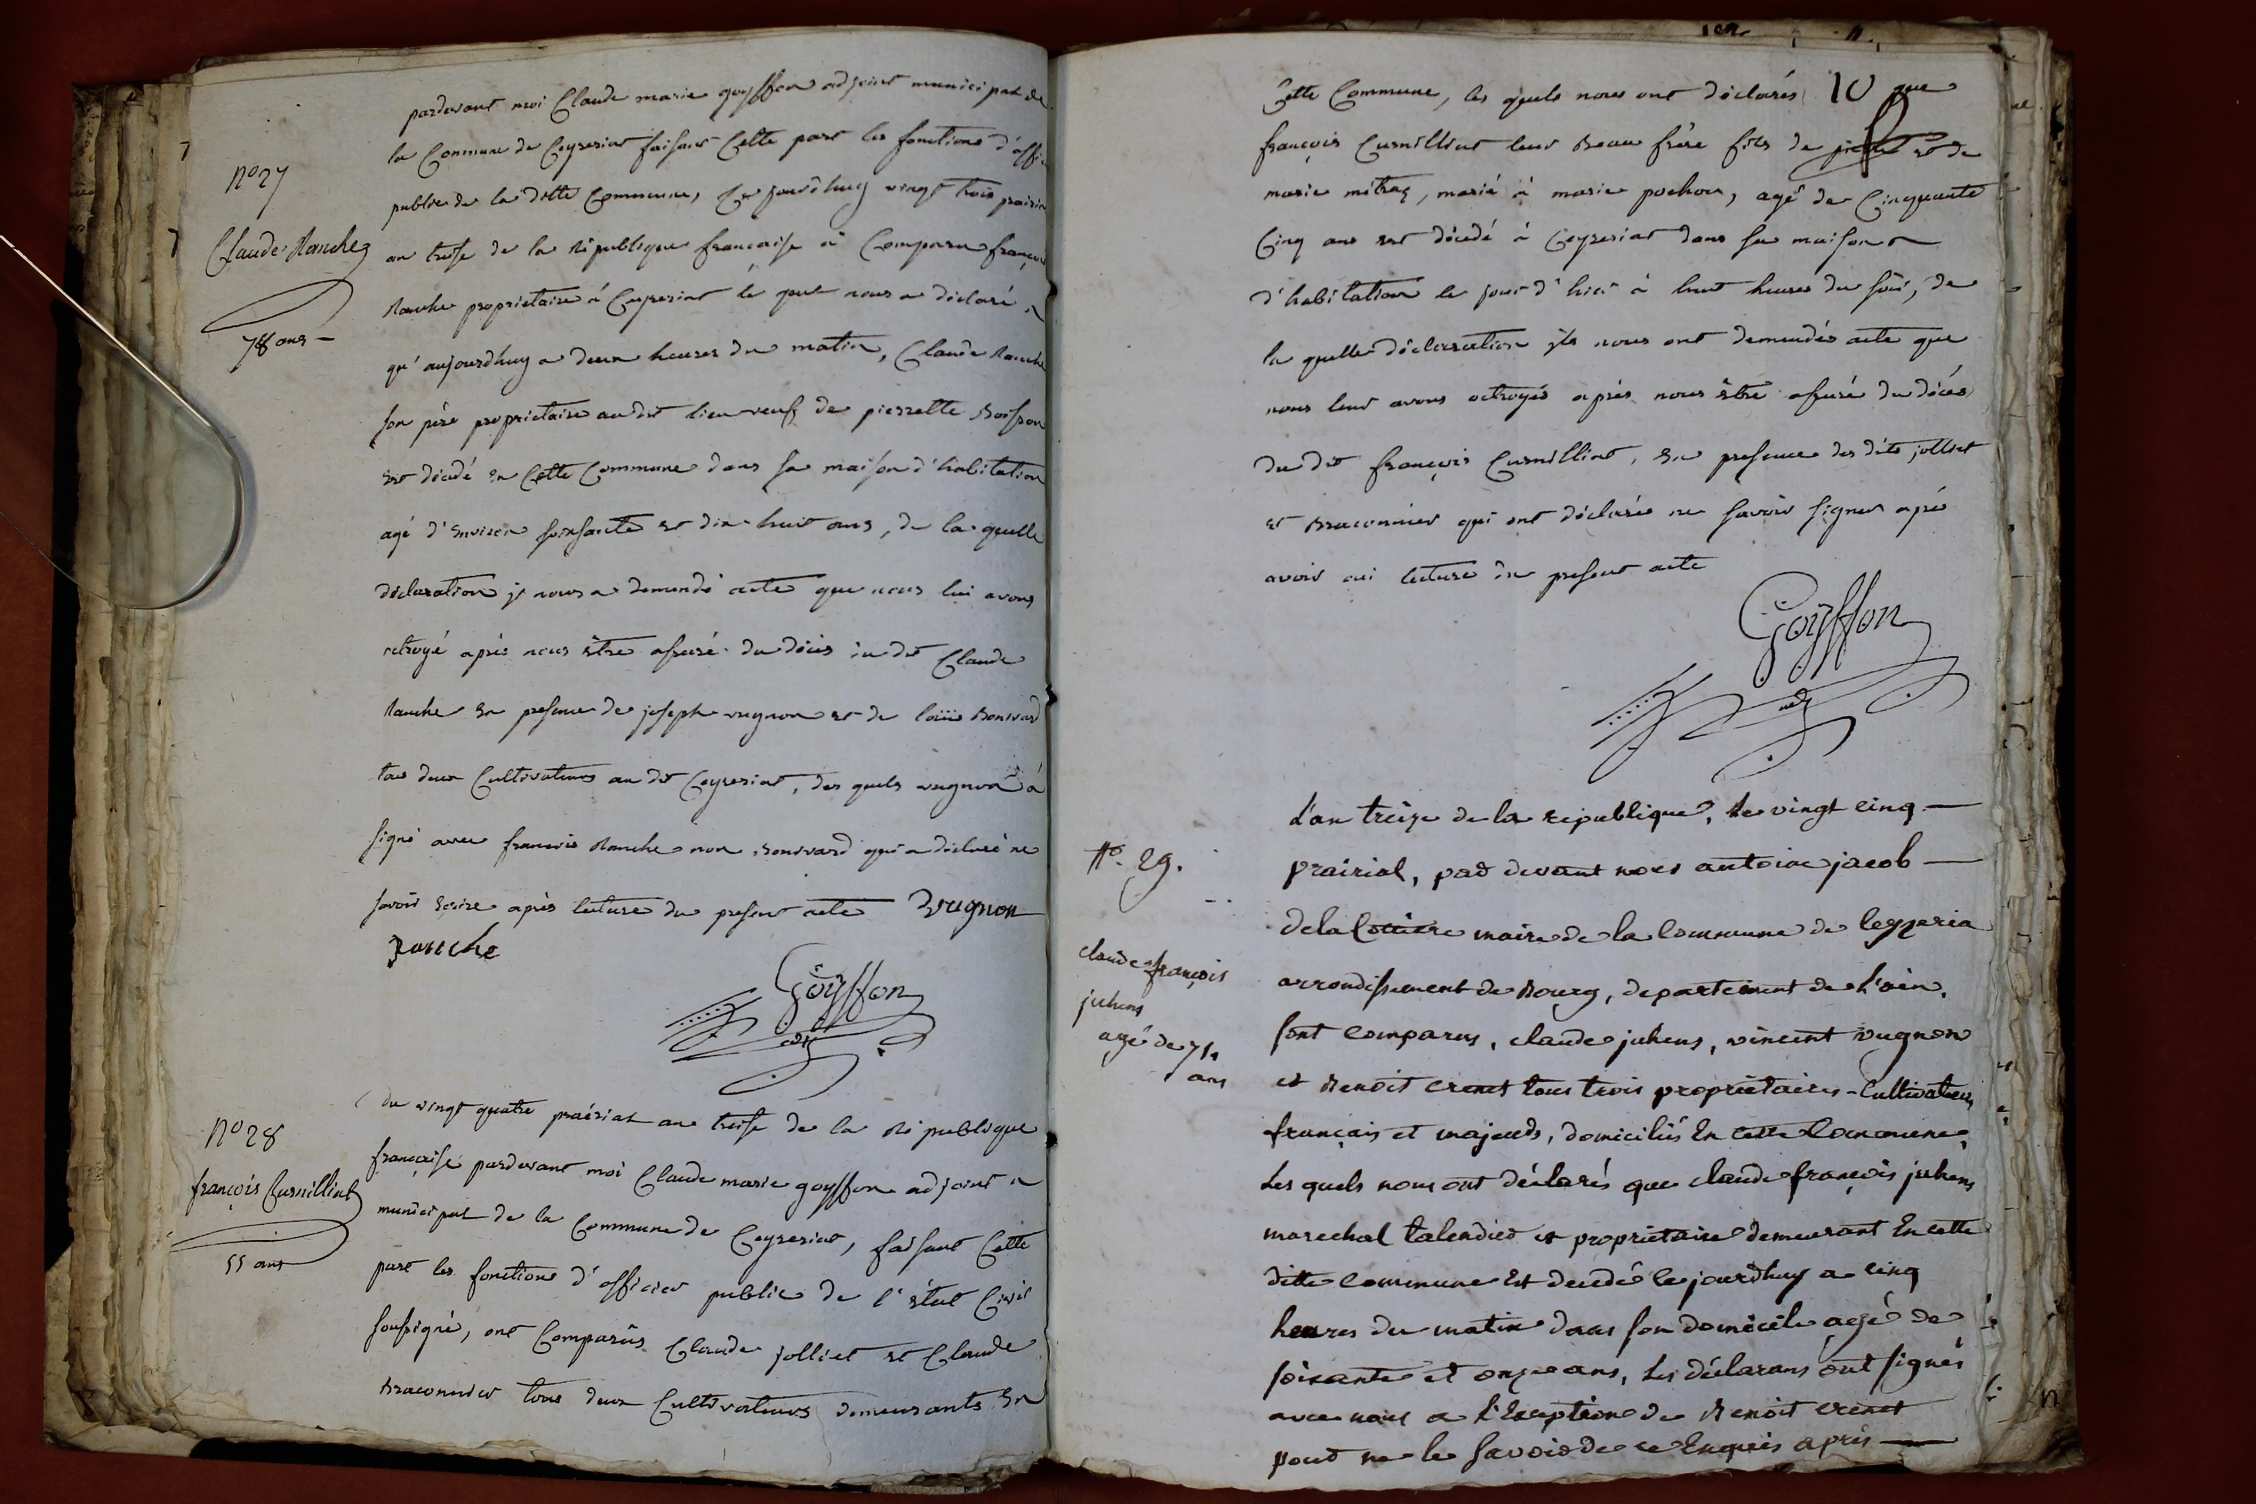 N° 27
Claude Ranche
78 ans
pardevant moi Claude marie goyffon adjoint municipal de
la Commune de Ceyzeriat faisant Cette part les fonctions d'offi
public de la ditte Commune, Ce jourd'huy vingt trois prairia
an treise de la République française a Comparu françois
Ranche proprietaire à Ceyzeriat le quel nous a déclaré
qu'aujourdhuy a deux heures du matin, Claude Ranche
son père proprietaire au dit lieu veuf de pierrette Boisson
est décédé en Cette Commune dans sa maison d'habitation
agé d'Environ soixsante et dix huit ans, de la quelle
déclaration il nous a demandé acte que nous lui avons
octroyé après nous être assuré du décès du dit Claude
Ranche En presence de joseph vugnon et de Bonvard
tous deux Cultivateurs au dit Ceyzeriat, des quels vugnon à
signé avec francois Ranche non Bonvard qui a déclaré ne
savoir Ecrire après lecture du present acte Vugnon
Ranche
Goyffon
adj
N° 28
françois Curnillint
55 ans
du vingt quatre praérial an treise de la République
française pardevant moi Claude marie goyffon adjoint
municipal de la Commune de Ceyzeriat, faisant Cette
part les fonctions d'officier public de l'état Civil
soussigné, ont Comparûs Claude jolliet et Claude
Braconnier tous deux Cultivateurs demeurants En
Cette Commune, les quels nous ont déclarés 10 que
françois Curnillint leur Beau frère fils de et de
marie mitraz, marié à marie pochon, agé de Cinquante
Cinq ans est décédé à Ceyzeriat dans sa maison
d'habitation le jour d'hier à huit heures du soir, de
la quelle déclaration ils nous ont demandés acte que
nous leur avons octroyés après nous être assuré du décès
du dit françois Curnillint, En presence des dits jolliet
et Braconnier qui ont déclarés ne savoir signer aprè
avoir oui lecture du present acte
Goyffon
adj
N°. 29.
claude françois
juhens
agé de 71
ans
L'an treize de la republique, Le vingt cinq
prairial, par devant nous antoine jacob
dela Cottière maire de la Commune de Ceyzeria
arrondissement de Bourg, departement de L'ain,
sont comparus, claude juhens, vincent vugnon
et Benoit crenet tous trois proprietaires-Cultivateurs
français et majeurs, domiciliés En cette Commune,
Les quels nous ont déclarés que claude françois juhens
marechal talendier et proprietaire demeurant En cette
ditte commune Est decedé ce jourdhuy a cinq
heures du matin dans son domicile agé de
soixante et onze ans, Les déclarans ont signés
avec nous a L'Exception de Benoit crenet
pour ne le savoir de ce Enquis après